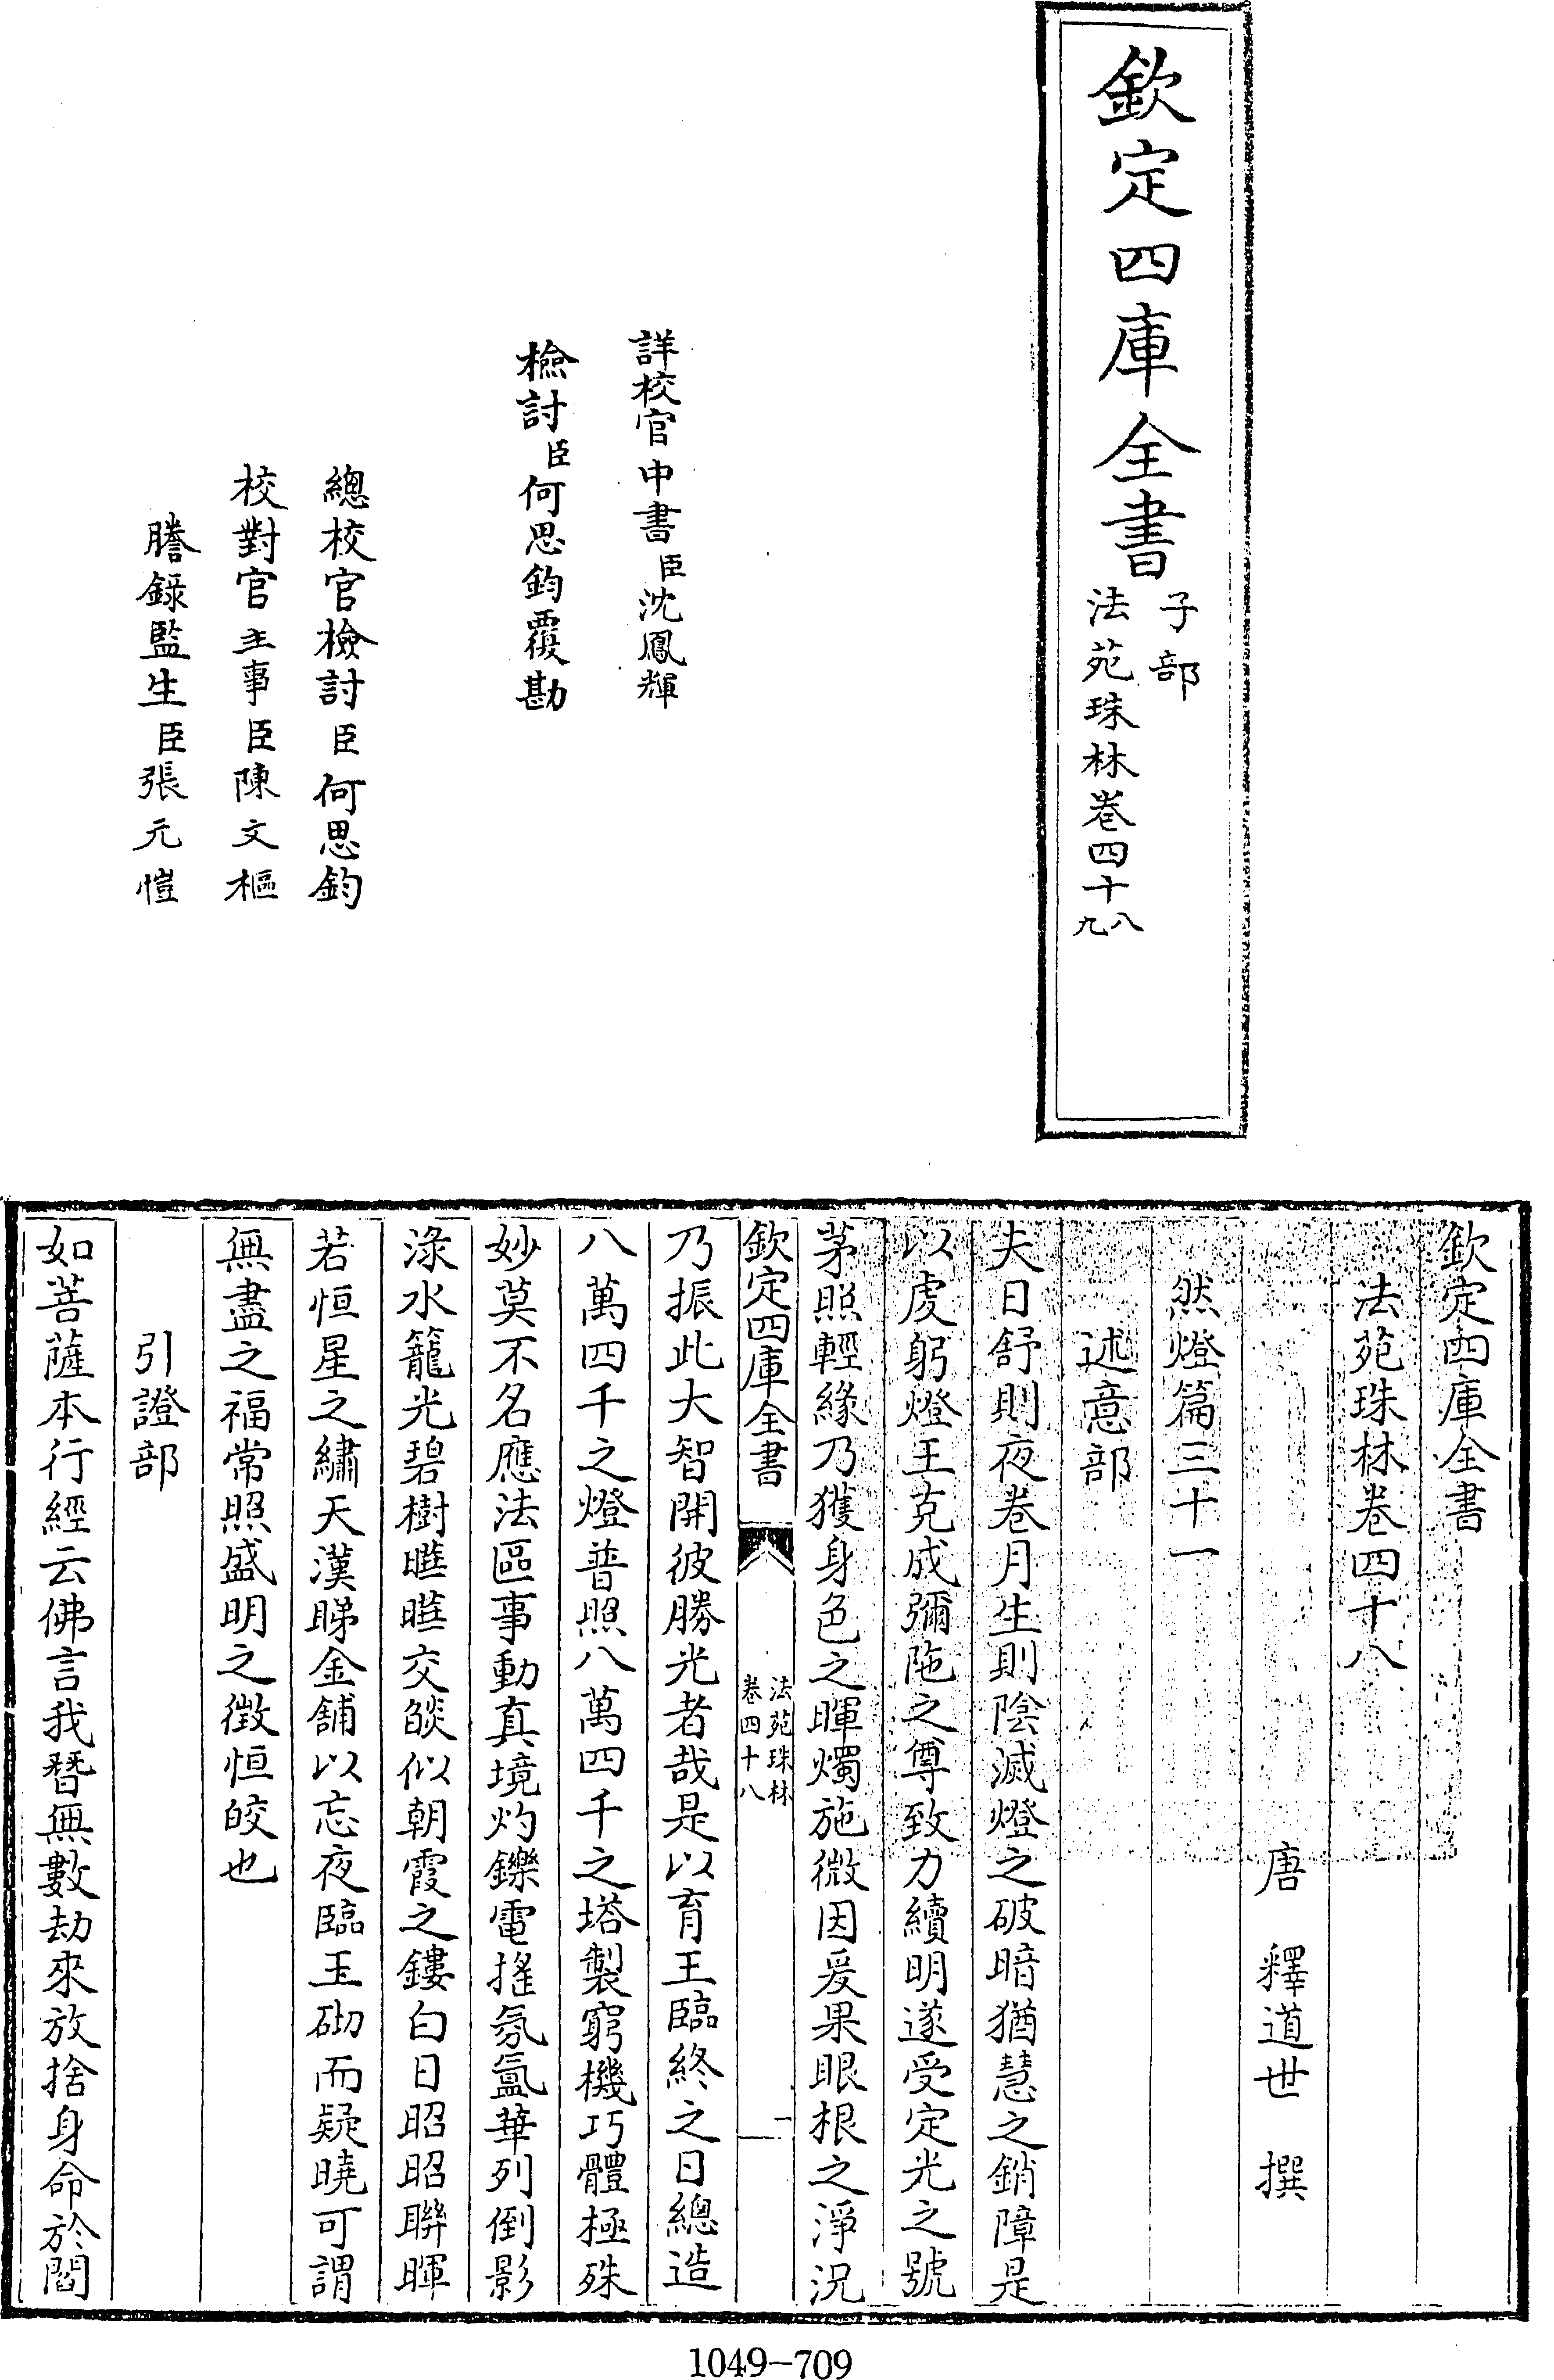 欽定四庫全書
子部
法苑珠林卷四十八九
詳校官中書臣沈鳳輝
檢討臣何思鈞覆勘
總校官檢討臣何思鈞
校對官主事臣陳文樞
謄錄監生臣張元愷
欽定四庫全書
法苑珠林卷四十八
唐 釋道世 撰
然燈篇三十一
述意部
夫日舒則夜卷月生則陰滅燈之破暗猶慧之銷障是
以虔躬燈王克成彌陁之尊致力續明遂受定光之號
茅照輕緣乃獲身色之暉燭施微因爰果眼根之淨況
欽定四庫全書
法苑珠林
卷四十八
一
乃振此大智開彼勝光者哉是以育王臨終之日總造
八萬四千之燈普照八萬四千之塔製窮機巧體極殊
妙莫不名應法區事動真境灼鑠電搖氛氳華列倒影
淥水籠光碧樹曖曖交燄似朝霞之鏤白日昭昭聯暉
若恒星之繡天漢睇金鋪以忘夜臨玉砌而疑曉可謂
無盡之福常照盛明之徵恒皎也
引證部
如菩薩本行經云佛言我㬱無數劫來放捨身命於閻
1049-709